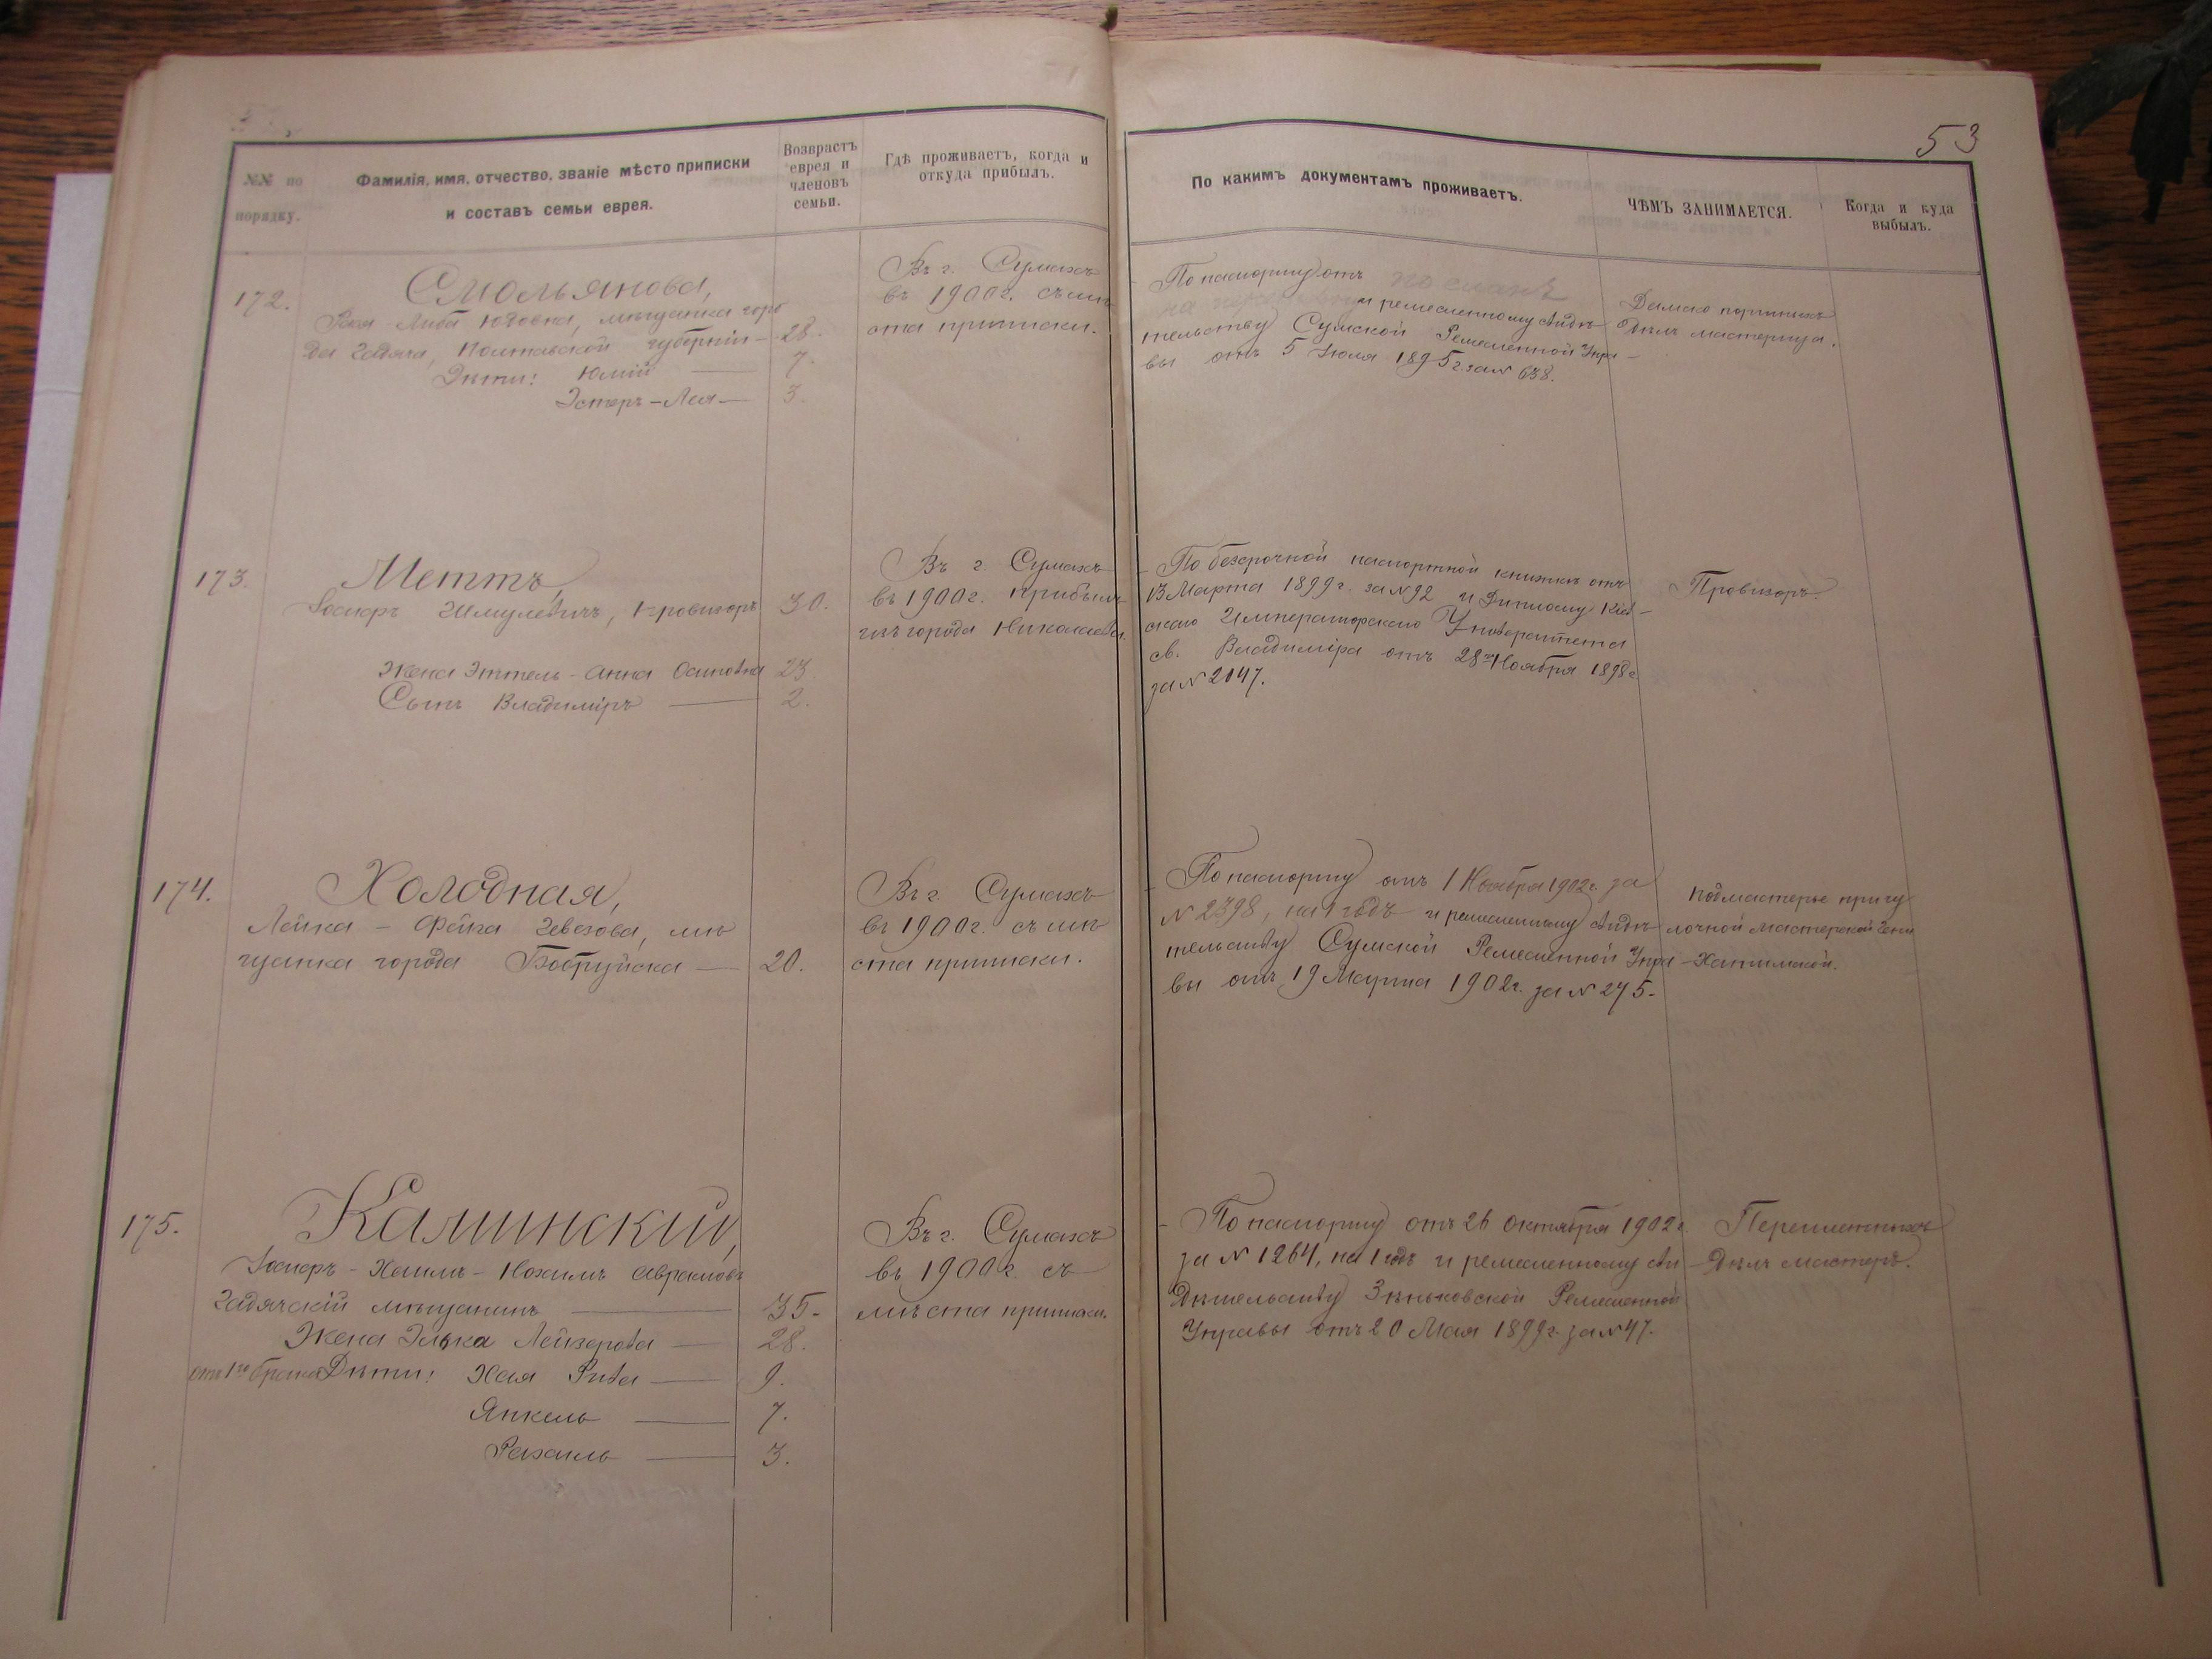 53
№№ по порядку.
Фамилія, имя, отчество, званіе мѣсто приписки
и составъ семьи еврея.
Возврастъ
еврея и
членовъ
семьи.
Гдѣ проживаетъ, когда и
откуда прибылъ.
По какимъ документамъ проживаетъ.
ЧѢМЪ ЗАНИМАЕТСЯ.
Когда и куда
выбылъ.
172.
Смольянова,
Либа Юдовна, мѣщанка горо
да Гадяча, Полтавской губерніи — 28.
Дѣти: Юлій — 7.
Эстеръ-Лея — 3.
Въ г. Сумахъ
въ 1900 г. съ мѣ
ста приписки.
По паспорту отъ
и ремесленному свидѣ
тельству Сумской Ремесленной Упра
вы отъ 5 Июля 1895 г. за № 638.
Дамско портныхъ
дѣлъ мастерица.
173.
Меттъ,
Іосифъ Шмулевичъ, провизоръ 30.
Жена Эттель-Анна Осиповна 23
Сынъ Владиміръ — 2.
Въ г. Сумахъ
въ 1900 г. прибылъ
изъ города Николаева.
По безсрочной паспортной книжкѣ отъ
13 Марта 1899 г. за № 92 и Диплому Кіев-
скаго Императорскаго Университета
св. Владиміра отъ 28го Ноября 1898 г.
за № 2147.
Провизоръ.
174.
Холодная,
Лейка - Фейга Зевелова, мѣ
щанка города Бобруйска — 20.
Въ г. Сумахъ
въ 1900 г. съ мѣ
ста приписки.
По паспорту отъ 1 Ноября 1902 г. за
№ 2398, на 1 годъ и ремесленному свидѣ
тельству Сумской Ремесленной Упра
вы отъ 19 Марта 1902 г. за № 275.
Подмастерье при чу
лочной мастерской Гени
Хатимской.
175.
Калинскій,
Іосифъ - Хаимъ - Нохимъ Абрамовъ
Гадячскій мѣщанинъ — 35.
Жена Элька Лейзерова — 28.
отъ 1го брака Дѣти: Хая Рива — 9.
Янкель — 7.
Рахиль — 3.
Въ г. Сумахъ
въ 1900 г. съ
мѣста приписки.
По паспорту отъ 26 Октября 1902 г.
за № 1264, на 1 годъ и ремесленному сви
дѣтельству Зѣньковской Ремесленной
Управы отъ 20 Мая 1899 г. за № 47.
Переплетныхъ
дѣлъ мастеръ.